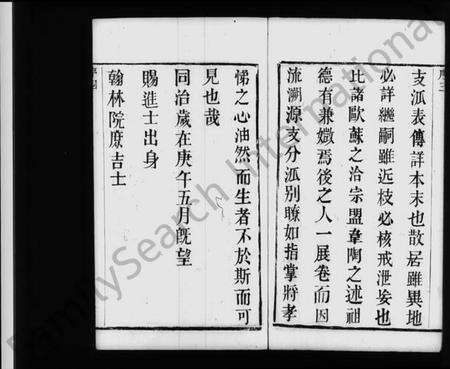 支𣲖表傳詳本末也散居雖異地
必詳繼嗣雖近枝必核戒泄妄也
比諸歐蘇之洽宗盟韋陶之述祖
德有兼媺焉後之人一展卷而因
流溯源支分𣲖别瞭如指掌將孝
悌之心油然而生者不於斯而可
見也哉
同治歲在庚午五月既望
賜進士出身
翰林院庶吉士
FamilySearch International